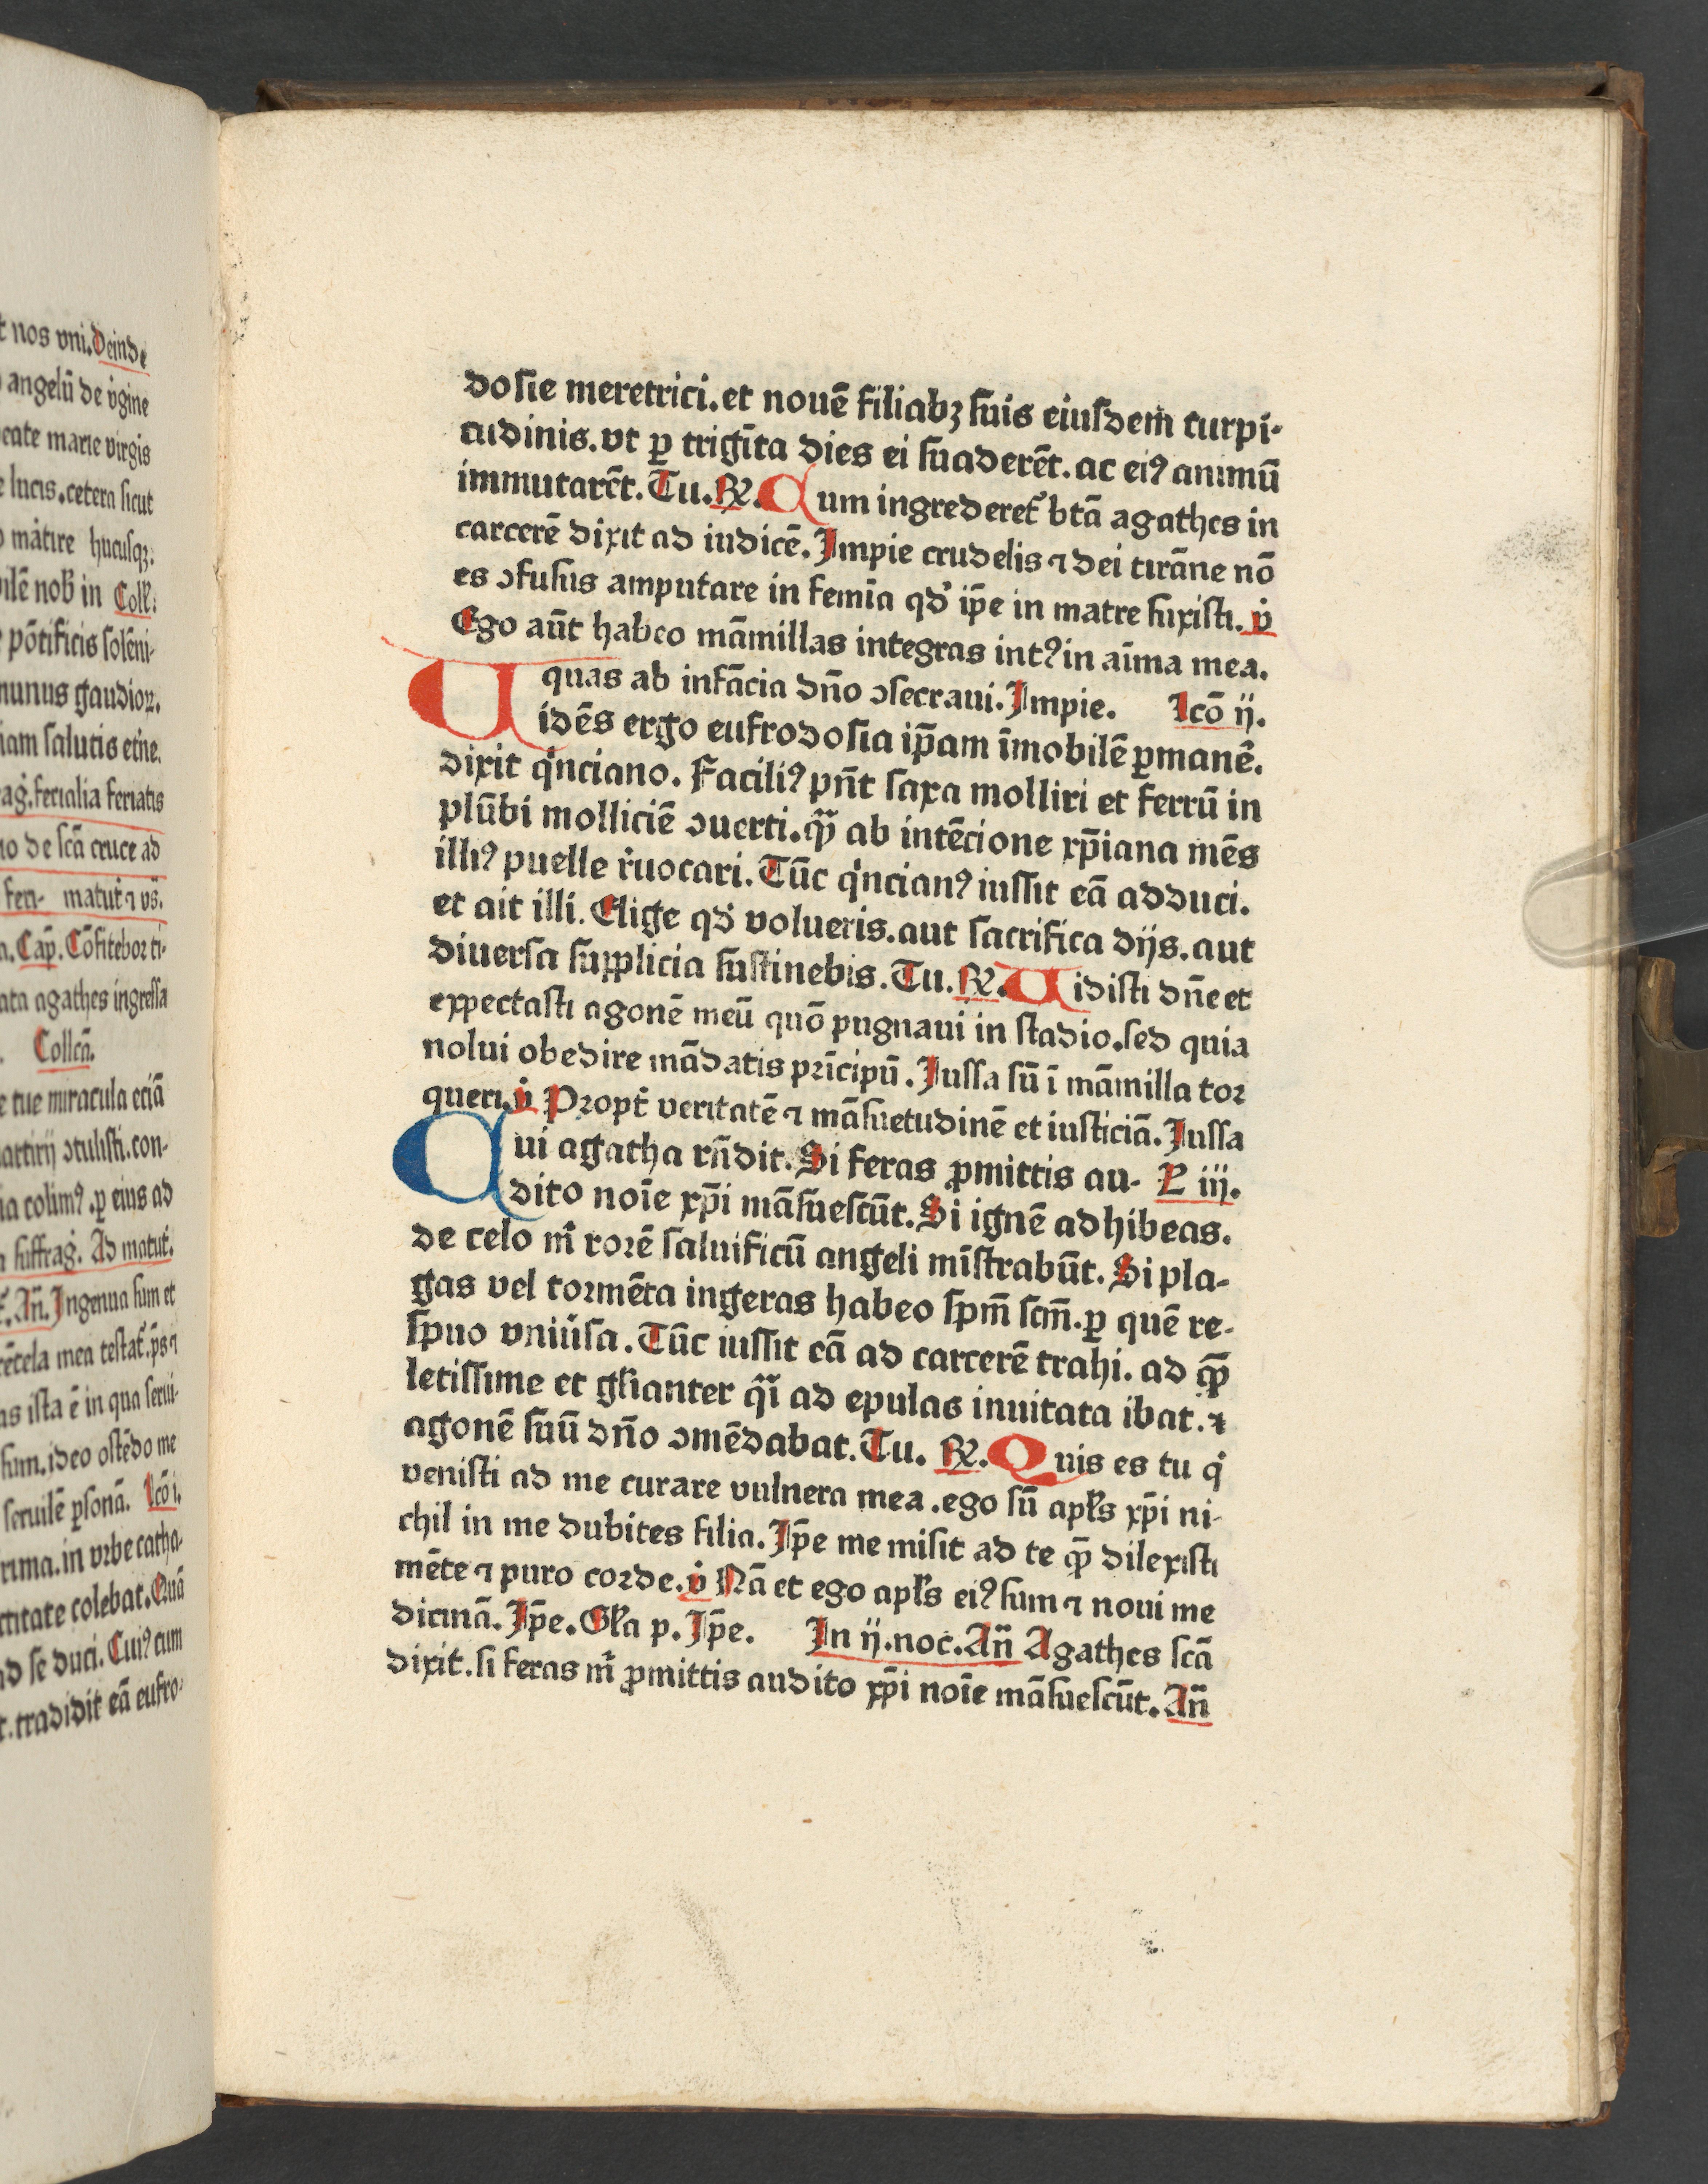 t nos vni. Deinde
angelū de v̇gine
eate marie virgis
e lucis. cetera sicut
mātire hucusqꝫ.
ilē nob̄ in Coll̄:
pōtificis solēni-
munus gaudioꝝ.
iam salutis et̄ne.
ag̊. ferialia feriatis
no de scā cruce ad
feri- matut̄ ⁊ vs̄.
a. Cap̄. Cōfitebor ti-
ata agathes ingressa
Collcā.
e tue miracula eciā
artirij ↄtulisti. con-
ia colimꝰ. ꝑ eius ad
suffrag̊. Ad matut̄.
An̄. Ingenua sum et
rētela mea testat̄. ps̄ ⁊
as ista ē in qua serui-
sum. ideo ostēdo me
seruilē ꝑsonā. Lcō i.
rima. in vrbe catha-
ctitate colebat. Quā
ad se duci. Cuiꝰ cum
t. tradidit eā eufro-
dosie meretrici. et nouē filiabꝫ suis eiusdem turpi-
tudinis. vt ꝑ trigīta dies ei suaderēt. ac eiꝰ animū
immutarēt. Tu. ℟. Cum ingrederet̄ btā agathes in
carcerē dixit ad iudicē. Impie crudelis ⁊ dei tirāne nō
es ↄfusus amputare in femīa qd̓ ip̄e in matre suxisti. v̇
Ego aūt habeo māmillas integras intꝰ in aīma mea.
quas ab infācia dn̄o ↄsecraui. Impie. Lcō ij.
Vidēs ergo eufrodosia ip̄am īmobilē ꝑmanē.
dixit q̇nciano. Faciliꝰ pn̄t saxa molliri et ferrū in
plūbi molliciē ↄuerti. qͣ̄ ab intēcione xp̄iana mēs
illiꝰ puelle r̓uocari. Tūc q̇ncianꝰ iussit eā adduci.
et ait illi. Elige qd̓ volueris. aut sacrifica dijs. aut
diuersa supplicia sustinebis. Tu. ℟. Vidisti dn̄e et
expectasti agonē meū quō pugnaui in stadio. sed quia
nolui obedire mādatis prīcipū. Iussa sū ī māmilla tor
queri. v̇ Propt̄ veritatē ⁊ māsuetudinē et iusticiā. Iussa
Cui agatha rn̄dit. Si feras ꝓmittis au- L iij.
dito noīe xp̄i māsuescūt. Si ignē adhibeas.
de celo m̄ rorē saluificū angeli mīstrabūt. Si pla-
gas vel tormēta ingeras habeo spm̄ scm̄. ꝑ quē re-
spuo vniūsa. Tūc iussit eā ad carcerē trahi. ad qͣ̄
letissime et gl̄ianter qͣi ad epulas inuitata ibat. ⁊
agonē suū dn̄o ↄmēdabat. Tu. ℟. Quis es tu q̇
venisti ad me curare vulnera mea. ego sū apl̄s xp̄i ni-
chil in me dubites filia. Ip̄e me misit ad te qͣ̄ dilexisti
mēte ⁊ puro corde. v̇ Nā et ego apl̄s eiꝰ sum ⁊ noui me
dicinā. Ip̄e. Gl̄a p. Ip̄e. In ij. noc. An̄ Agathes scā
dixit. si feras m̄ ꝓmittis audito xp̄i noīe māsuescūt. An̄